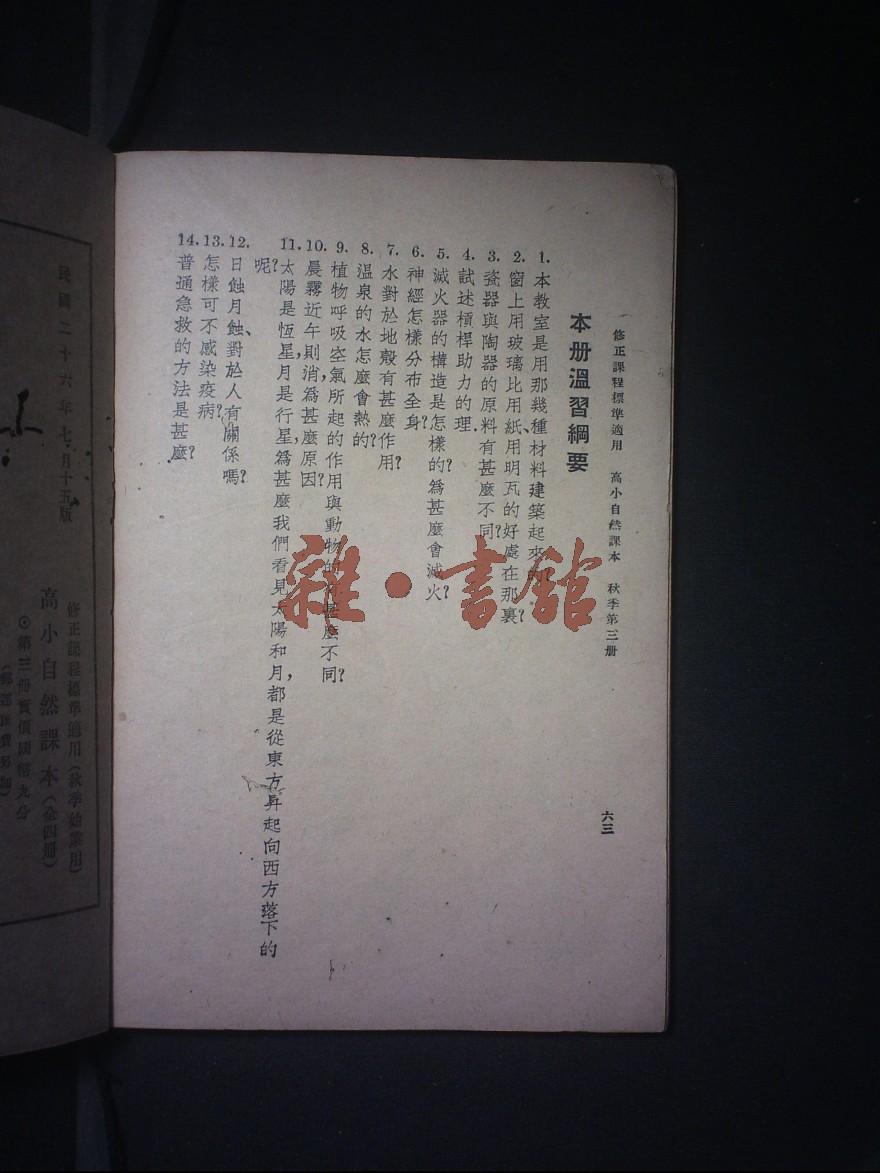 修正課程標準適用 高小自然課本 秋季第三册
六三
本册溫習綱要
1. 本教室是用那幾種材料建築起來的
2. 窗上用玻璃比用紙、用明瓦的好處在那裏?
3. 瓷器與陶器的原料有甚麼不同?
4. 試述槓桿助力的理.
5. 滅火器的構造是怎樣的?爲甚麼會滅火?
6. 神經怎樣分布全身?
7. 水對於地殼有甚麼作用?
8. 溫泉的水怎麼會熱的?
9. 植物呼吸空氣所起的作用與動物的甚麼不同?
10. 晨霧近午則消,爲甚麼原因?
11. 太陽是恆星,月是行星,爲甚麼我們看見太陽和月,都是從東方昇起向西方落下的
呢?
12. 日蝕、月蝕對於人有關係嗎?
13. 怎樣可不感染疫病?
14. 普通急救的方法是甚麼?
雜·書館
修正課程標準適用(秋季始業用)
高小自然課本(全四册)
⊙第三册實價國幣九分
民國二十六年七月十五版